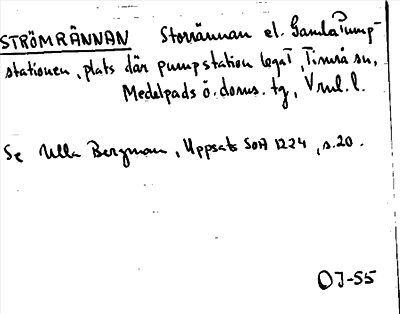 STRÖMRÄNNAN Storrännan el. Gamla Pump-
stationen, plats där pumpstation legat, Timrå sn,
Medelpads ö. doms. tg, Vnl. l.
Se Ulla Bergman, Uppsats SOÄ 1224, s. 20.
OJ-55